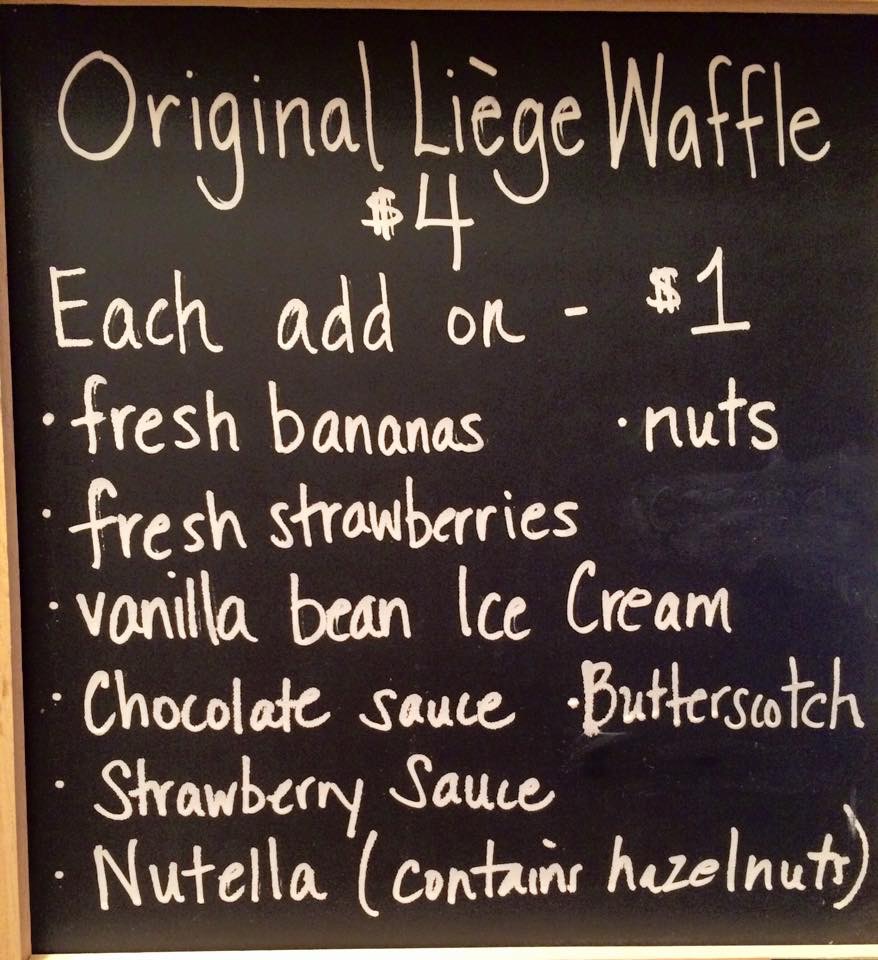 Original Liège Waffle
$4
Each add on - $1
· fresh bananas · nuts
· fresh strawberries
· vanilla bean Ice Cream
· Chocolate sauce · Butterscotch
· Strawberry Sauce
· Nutella (contains hazelnuts)